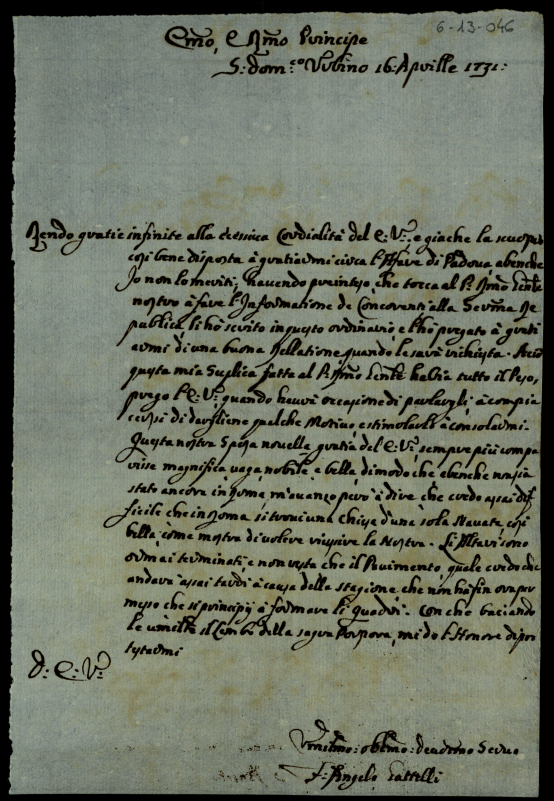 6-13-046
Emo, e Rmo Principe
S: Domco Urbino 16: Aprille 1731:
Rendo gratie infinite alla
Cordialità del E: V: e giache la scuopro
così bene disposta à gratiarmi circa l'Affare di Padova abenche
Io non lo meriti, havendo preinteso che tocca al P: Rmo Gente
nostro à fare l'Informatione de Concorrenti alla Serma Re
publica li hò scrito in questo ordinario, e l'hò pregato à grati
armi di una buona Rellatione quando le sarà richiesta. Acciò
questa mia Suplica fatta al P: Rmo Gente habia tutto il Peso,
prego l'E: V: quando haurà occasione di parlargli à compia
cersi di dargliene qualche Motivo, e stimolarlo à consolarmi.
Questa nostra Spesa novella gratia del E: V: sempre più compa
risse magnifica vaga nobile e bella dimodo che abenche non sia
stato ancora in Roma m'avanzo però à dire, che credo assai dif
ficile che in Roma si trovi una Chiesa d'una sola Navata, così
bella come mostra di volere riuscire la Nostra. Li Altari sono
ormai terminati, e non resta che il Pavimento, quale credo che
andarà assai tardi à causa della stagione, che non hà fin ora per
messo che si principij à formare li quadri. Con che baciando
le umilte il Lembo della sagra Porpora, mi dò l'Honore di pro
testarmi
D: E: V:
Umilmo: oblmo: devotmo Servo
F: Angelo Gattelli